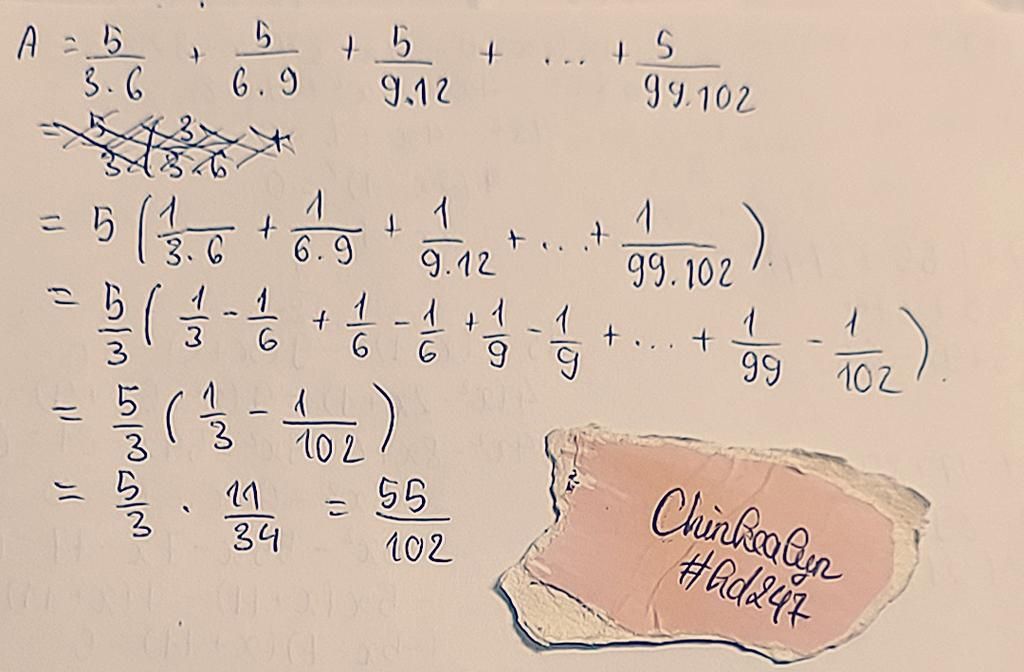 A = 5/3.6 + 5/6.9 + 5/9.12 + ... + 5/99.102
= 5 ( 1/3.6 + 1/6.9 + 1/9.12 + ... + 1/99.102 ).
= 5/3 ( 1/3 - 1/6 + 1/6 - 1/6 + 1/9 - 1/9 + ... + 1/99 - 1/102 ).
= 5/3 ( 1/3 - 1/102 )
= 5/3 . 11/34 = 55/102
#Ad247